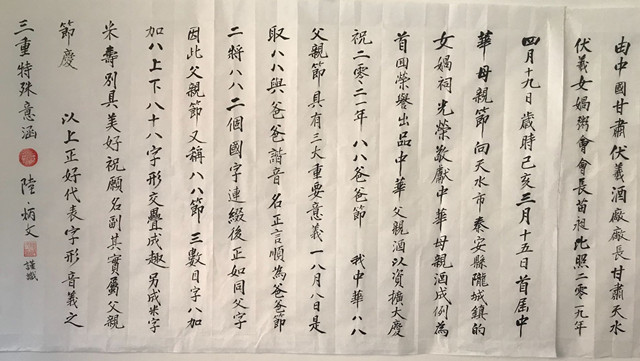 由中國甘肅伏羲酒廠廠長甘肅天水
伏羲女媧粥會會長苗比照二零一九年
四月十九日歲時己亥三月十五日首屆中
華母親節向天水市秦安縣隴城鎮的
女媧祠光榮敬獻中華母親酒成例為
首回榮譽出品中華父親酒以資擴大慶
祝二零二一年八八爸爸節 我中華八八
父親節具有三大重要意義一八月八日是
取八八與爸爸諧音名正言順為爸爸節
二將八八二個國字連綴後正如同父字
因此父親節又稱八八節 三數目字八加
加八上下八十八字形交疊成趣另成米字
米壽別具美好祝願名副其實屬父親
節慶 以上正好代表字形音義之
三重特殊意涵 陸炳文 謹識